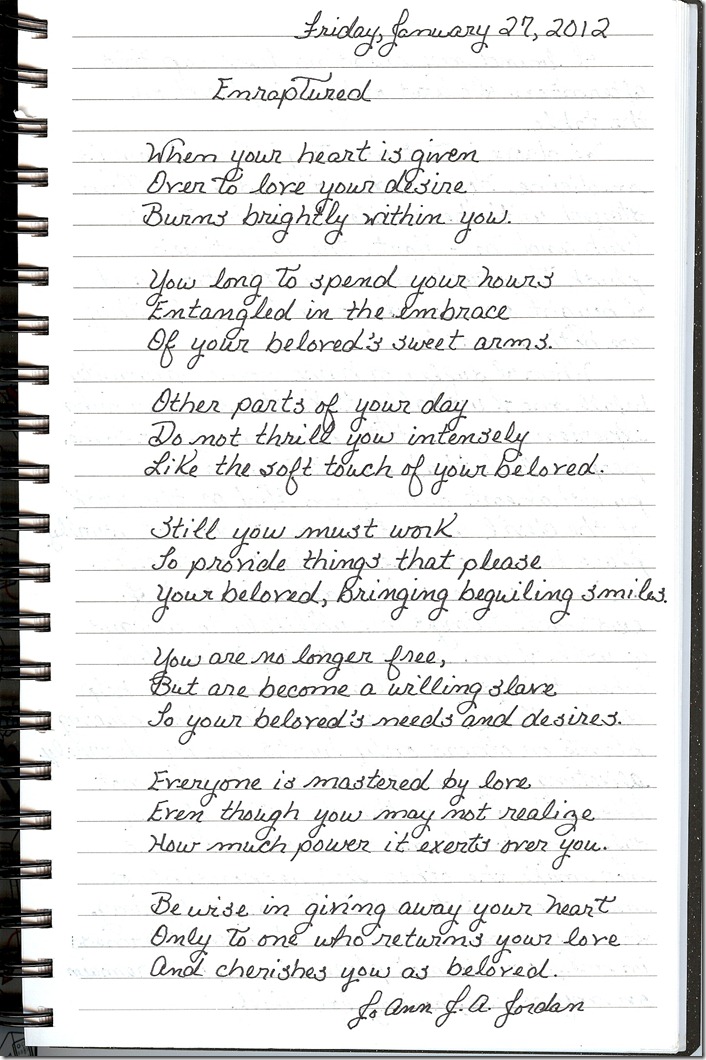 Friday, January 27, 2012
Enraptured
When your heart is given
Over to love your desire
Burns brightly within you.
You long to spend your hours
Entangled in the embrace
Of your beloved's sweet arms.
Other parts of your day
Do not thrill you intensely
Like the soft touch of your beloved.
Still you must work
To provide things that please
Your beloved, bringing beguiling smiles.
You are no longer free,
But are become a willing slave
To your beloved's needs and desires.
Everyone is mastered by love
Even though you may not realize
How much power it exerts over you.
Be wise in giving away your heart
Only to one who returns your love
And cherishes you as beloved.
Jo Ann J. A. Jordan